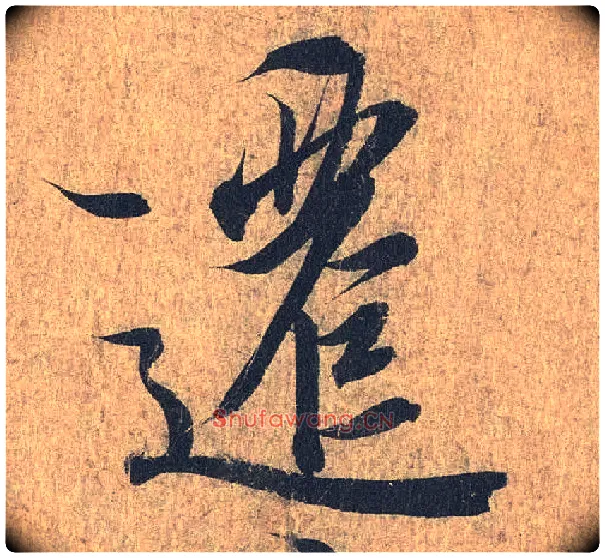 遷
Shufawang.CN